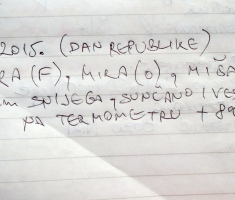 2015. (DAN REPUBLIKE)
RA(F), MIRA(O), MIŠA
M SNIJEGA, SUNČANO I VE
NA TERMOMETRU +89